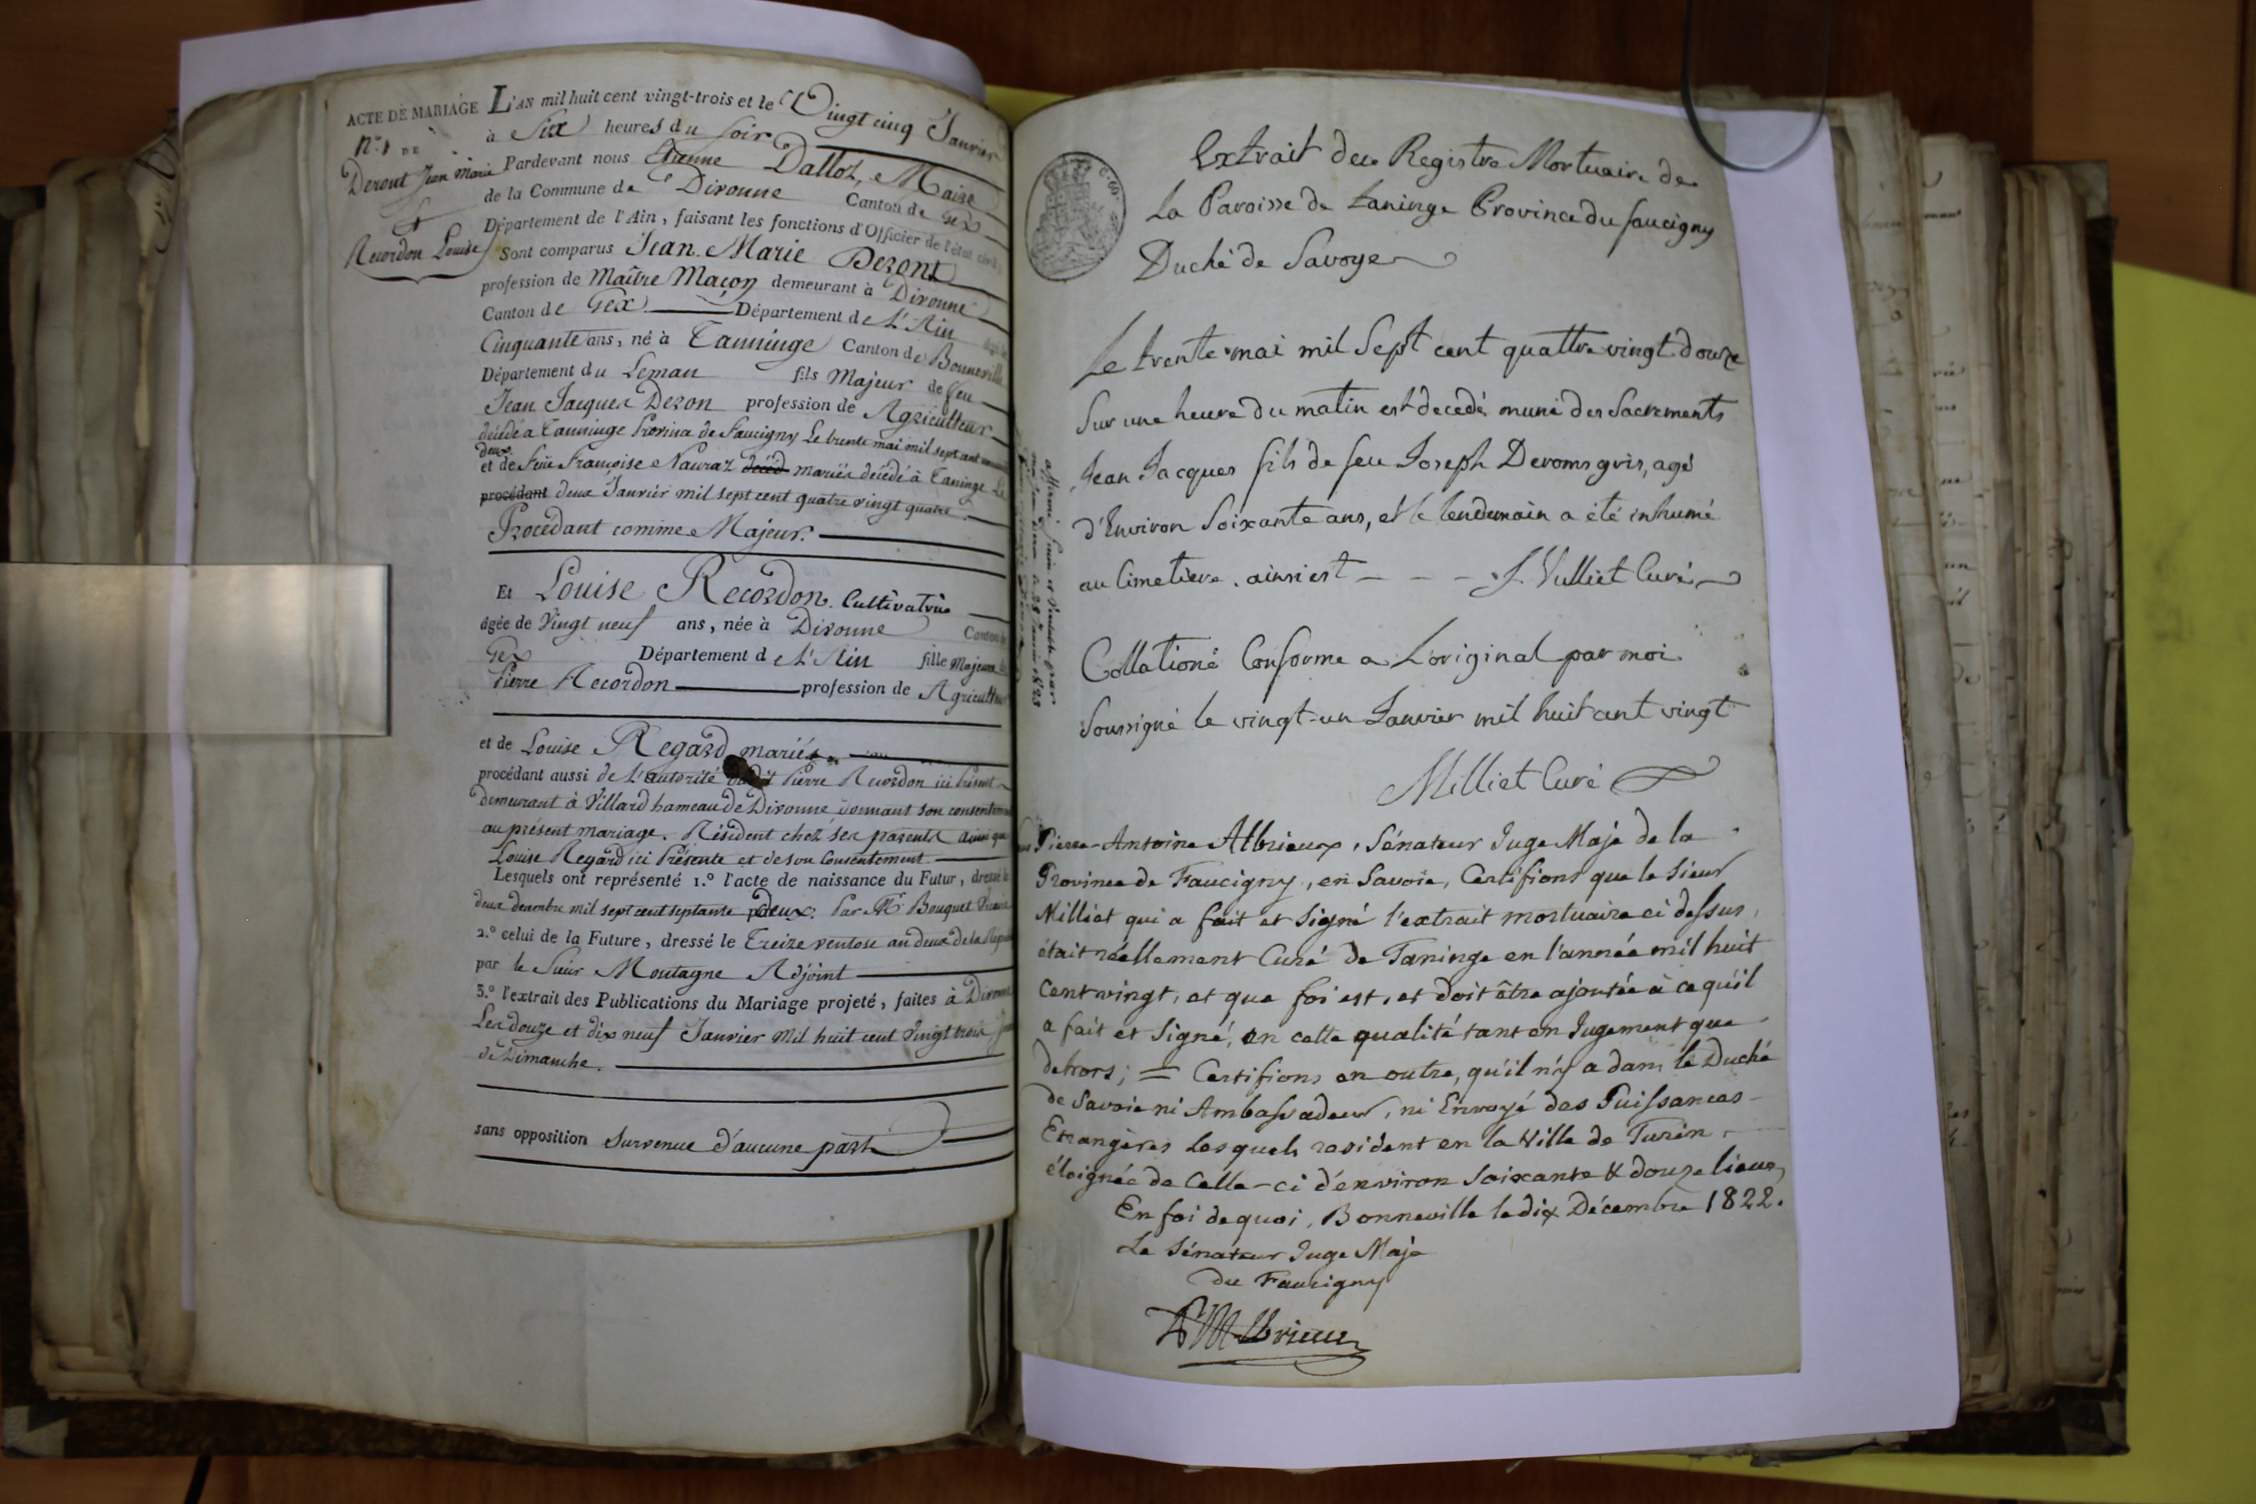 ACTE DE MARIAGE
N.° 1 DE
Deront Jean Marie
et
Recordon Louise
L'AN mil huit cent vingt-trois et le Vingt cinq Janvier
à Six heures du soir
Pardevant nous Etienne Dalloz, Maire
de la Commune de Divonne Canton de Gex
Département de l'Ain, faisant les fonctions d'Officier de l'état civil
Sont comparus Jean Marie Deront
profession de Maître Maçon demeurant à Divonne
Canton de Gex Département de L'Ain
Cinquante ans, né à Tanninge Canton de Bonneville
Département du Leman fils Majeur de feu
Jean Jacques Deron profession de Agriculteur
décédé à Tanninge Province de Faucigny Le trente mai mil sept cent
deux
et de feüe Françoise Navraz décéd mariés décédé à Taninge Le
procédant deux Janvier mil sept cent quatre vingt quatre.
Procédant comme Majeur.
Et Louise Recordon. Cultivatrice
âgée de Vingt neuf ans, née à Divonne Canton de
Gex Département d L'Ain fille Majeure de
Pierre Recordon profession de Agriculteur
et de Louise Regard mariés.
procédant aussi de L'autorité dudit Pierre Recordon ici Présent
demeurant à Villard hameau de Divonne donnant son consentement
au présent mariage. Résident chez ses parents ainsi que
Louise Regard ici Présente et de son Consentement.
Lesquels ont représenté 1.° l'acte de naissance du Futur, dressé le
deux decembre mil sept cent septante deux. Par Mr. Bouquet Vicaire
2.° celui de la Future, dressé le Treize ventose an deux de la
par le Sieur Montagne Adjoint
3.° l'extrait des Publications du Mariage projeté, faites à Divonne
Les douze et dix neuf Janvier Mil huit cent Vingt trois jour
de Dimanche.
sans opposition Survenue d'aucune part
Extrait des Registre Mortuaire de
La Paroisse de Taninge Province du faucigny
Duché de Savoye
Le trente mai mil Sept cent quattre vingt douze
Sur une heure du matin est decedé muni des Sacrements
Jean Jacques fils de feu Joseph Deromsgris, agé
d'Environ Soixante ans, et le lendemain a été inhumé
au Cimetiere. ainsi est - - - J. Vulliet Curé
Collationé Conforme a L'original par moi
Soussigné le vingt-un Janvier mil huit cent vingt
Milliet Curé
Pierre-Antoine Albrieux, Sénateur Juge Maje de la
Province de Faucigny, en Savoie, Certifions que le Sieur
Milliet qui a fait et Signé l'extrait mortuaire ci dessus,
était réellement Curé de Taninge en l'année mil huit
cent vingt, et que foi est, et doit être ajoutée à ce qu'il
a fait et Signé, en cette qualité tant en Jugement que
dehors; = Certifions en outre, qu'il n'y a dans le Duché
de Savoie ni Ambassadeur, ni Envoyé des Puissances
Etrangères Lesquels resident en la Ville de Turin,
éloignée de Celle-ci d'environ Soixante & douze lieues
En foi de quoi, Bonneville le dix Décembre 1822.
Le Sénateur Juge Maje
du Faucigny
Albrieux